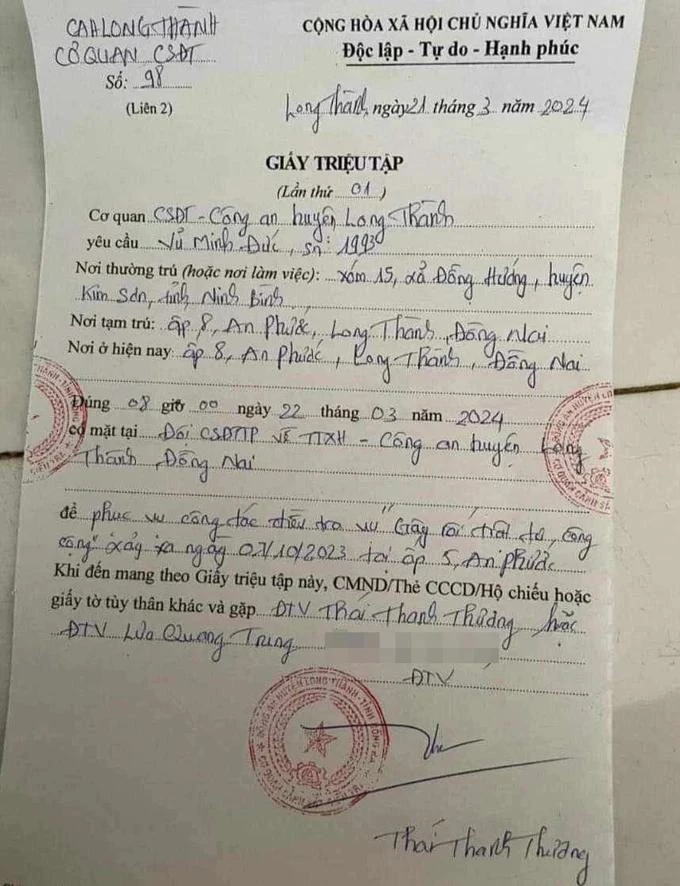 CAH LONG THÀNH
CƠ QUAN CSĐT
Số: 98
(Liên 2)
CỘNG HÒA XÃ HỘI CHỦ NGHĨA VIỆT NAM
Độc lập - Tự do - Hạnh phúc
Long Thành, ngày 21 tháng 3 năm 2024
GIẤY TRIỆU TẬP
(Lần thứ 01)
Cơ quan CSĐT - Công an huyện Long Thành
yêu cầu Vũ Minh Đức, sn: 1993
Nơi thường trú (hoặc nơi làm việc): xóm 15, xã Đồng Hướng, huyện
Kim Sơn, tỉnh Ninh Bình
Nơi tạm trú: ấp 8, An Phước, Long Thành, Đồng Nai
Nơi ở hiện nay: ấp 8, An Phước, Long Thành, Đồng Nai
Đúng 08 giờ 00 ngày 22 tháng 03 năm 2024
có mặt tại Đội CSĐTTP về TTXH - Công an huyện Long
Thành, Đồng Nai
để phục vụ công tác điều tra vụ "Gây rối trật tự công
cộng" xảy xa ngày 07/10/2023 tại ấp 5, An Phước
Khi đến mang theo Giấy triệu tập này, CMND/Thẻ CCCD/Hộ chiếu hoặc
giấy tờ tùy thân khác và gặp ĐTV Thái Thanh Thương hoặc
ĐTV Lưu Quang Trung
ĐTV
CÔNG AN HUYỆN LONG THÀNH - TỈNH ĐỒNG NAI
CƠ QUAN CẢNH SÁT ĐIỀU TRA
Thái Thanh Thương